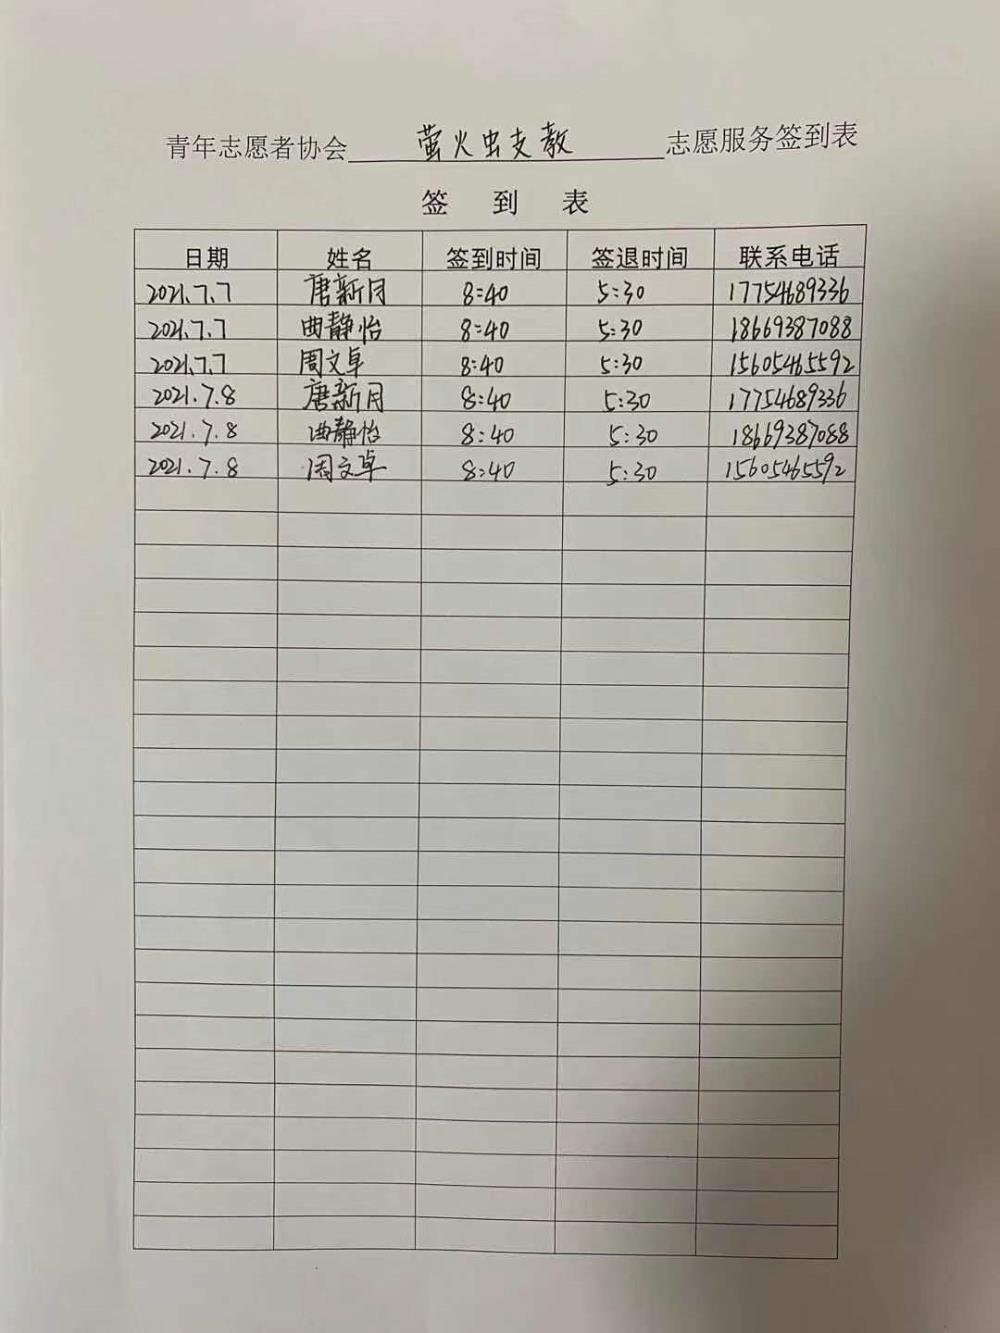 青年志愿者协会 萤火虫支教 志愿服务签到表
签 到 表
日期 姓名 签到时间 签退时间 联系电话
2021.7.7 唐新月 8:40 5:30 17754689336
2021.7.7 曲静怡 8:40 5:30 18669387088
2021.7.7 周文卓 8:40 5:30 15605465592
2021.7.8 唐新月 8:40 5:30 17754689336
2021.7.8 曲静怡 8:40 5:30 18669387088
2021.7.8 周文卓 8:40 5:30 15605465592